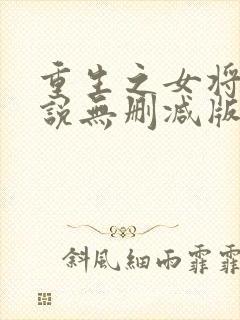 重生之女将
說無删减版
斜風細雨霏霏